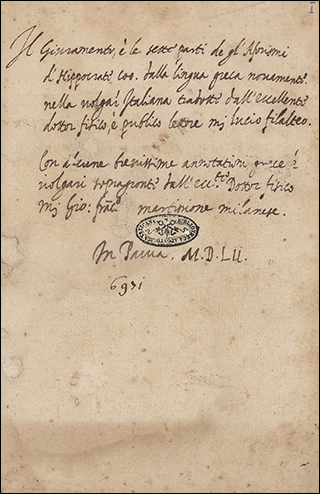 1
Il Giuramento, è le sette parti de gl Aforismi
d Hippocrate coo. dalla lingua greca novamente
nella volgar Italiana tradotte dall'eccellente
dottor fisico, è publico lettore mj lucio filalteo.
Con alcune brevissime annotationi grece è
volgari sopragionte dall'ecc.te Dottor fisico
Mj Gio: fran.co martinione milanese.
In Pavia. M.D.LII.
6931